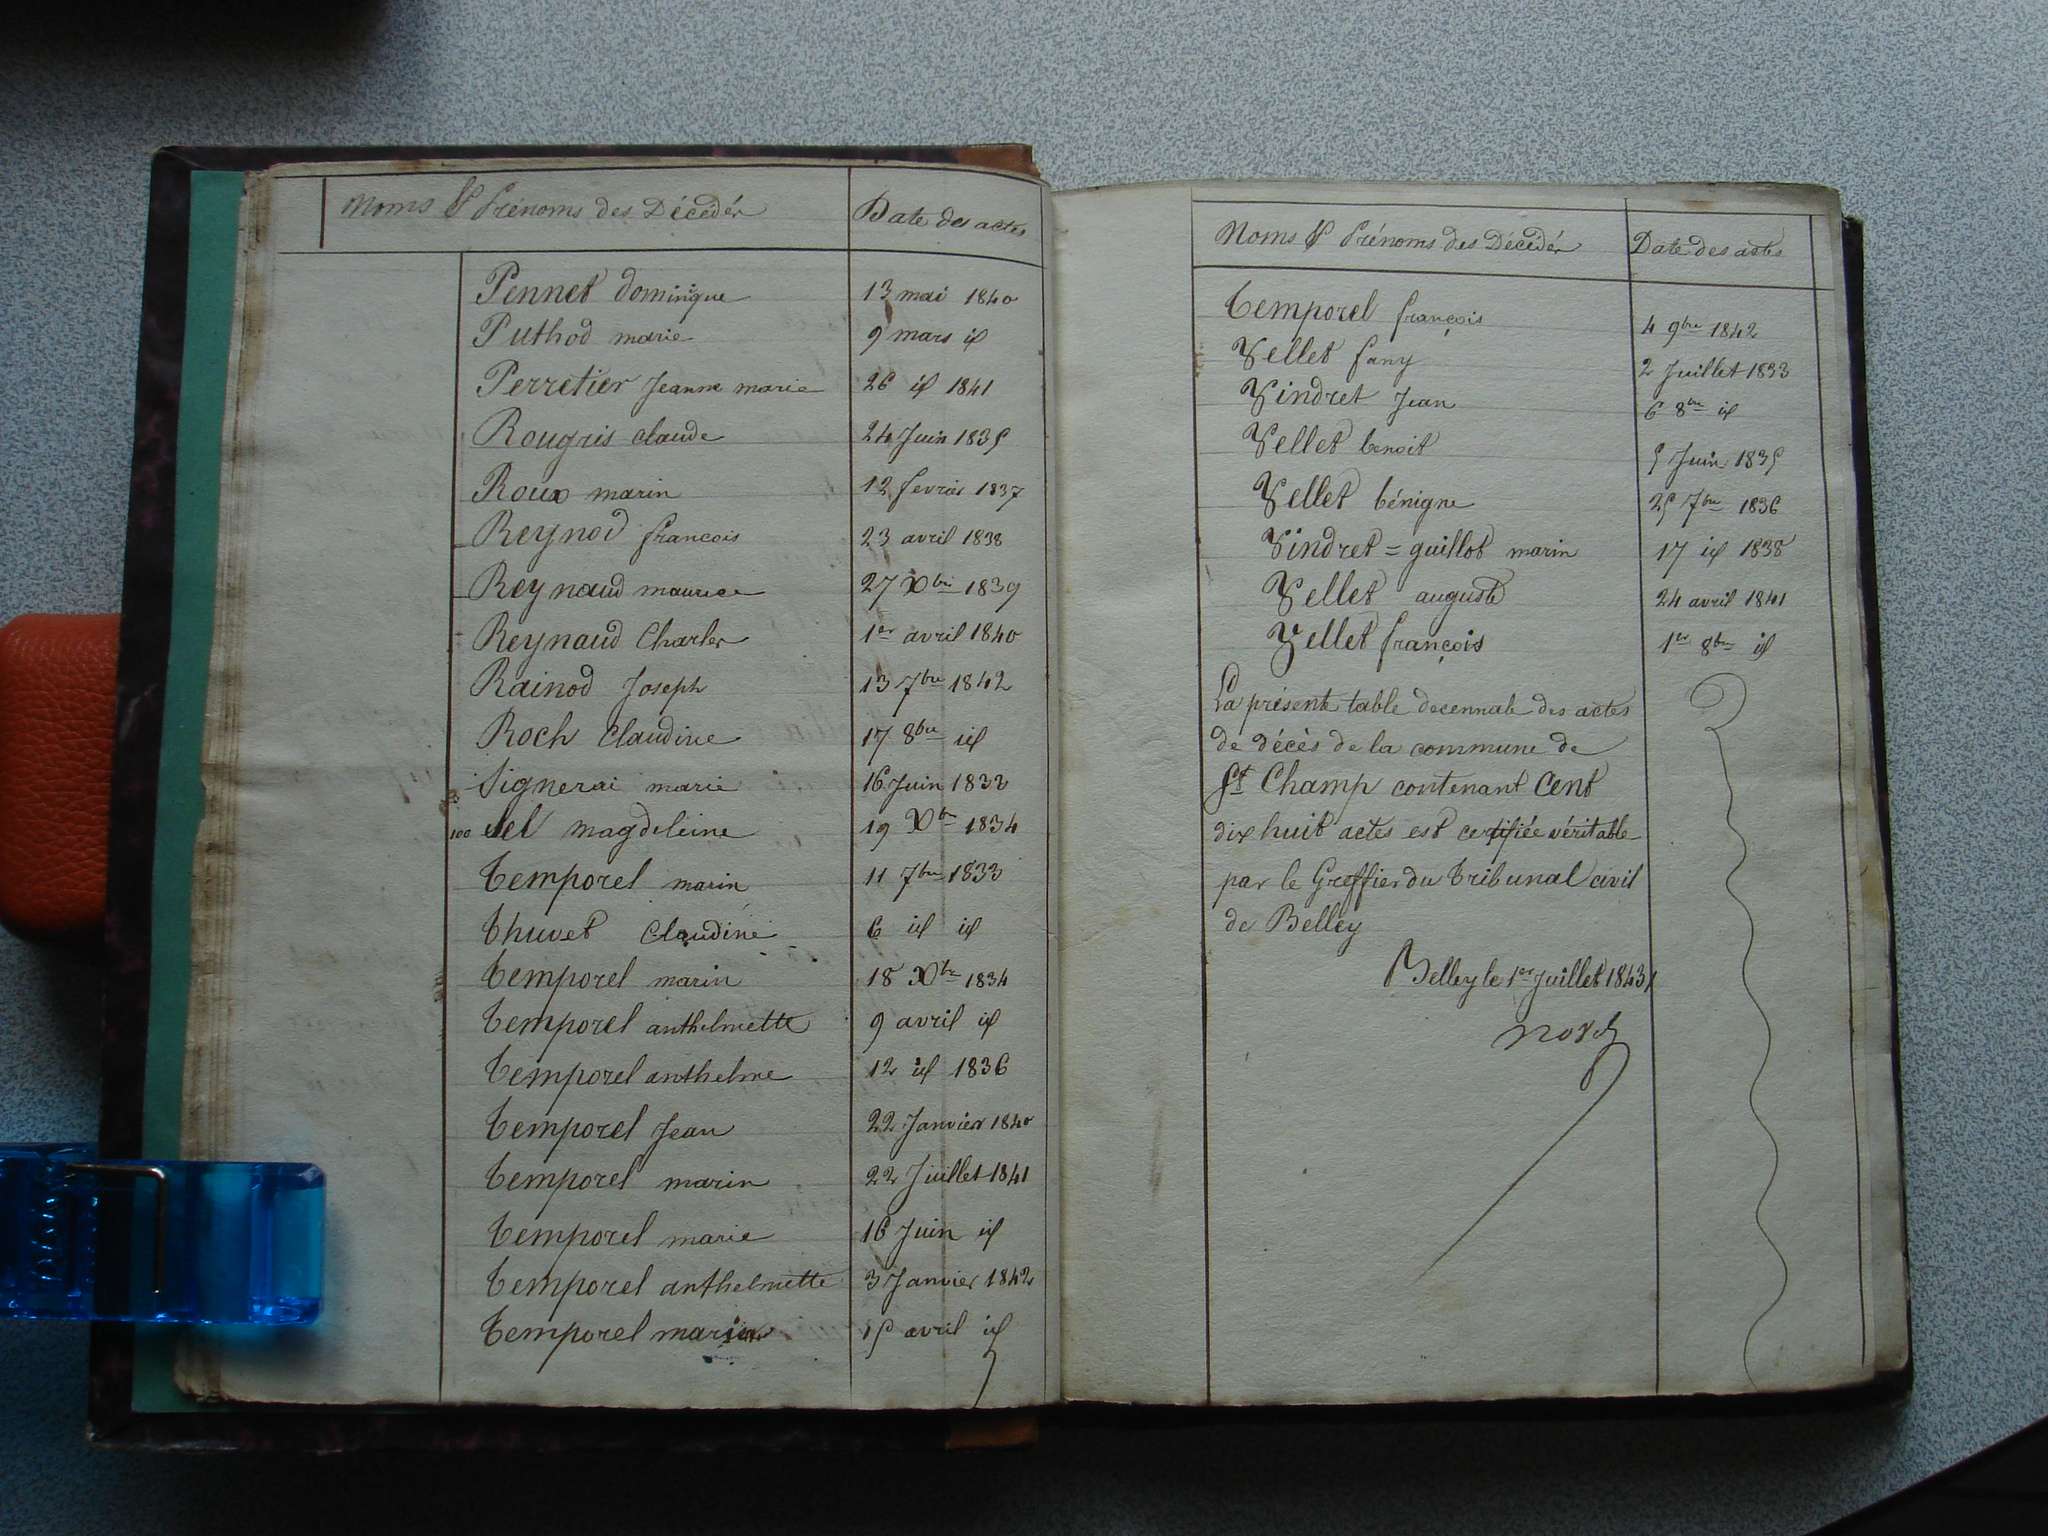 Noms & Prénoms des Décédés Date des actes
Pennet dominique 13 mai 1840
Puthod marie 9 mars id
Perretier Jeanne marie 26 id 1841
Rougris claude 24 Juin 1835
Roux marin 12 fevrier 1837
Reynod francois 23 avril 1838
Reynaud maurice 27 Xbre 1839
Reynaud Charles 1er avril 1840
Rainod Joseph 13 7bre 1842
Roch Claudine 17 8bre id
Signerai marie 16 Juin 1833
100 Sel magdeleine 19 Xbre 1834
Temporel marin 11 7bre 1833
Thuvet Claudine 6 id id
Temporel marin 18 Xbre 1834
Temporel anthelmette 9 avril id
Temporel anthelme 12 id 1836
Temporel Jean 22 Janvier 1840
Temporel marin 22 Juillet 1841
Temporel marie 16 Juin id
Temporel anthelmette 3 Janvier 1842
Temporel marin 15 avril id
Noms & Prénoms des Décédés Date des actes
Temporel françois 4 9bre 1842
Vellet fany 2 Juillet 1833
Vindret Jean 6 8bre id
Vellet benoit 5 Juin 1835
Vellet bénigne 25 7bre 1836
Vindret = guillot marin 17 id 1838
Vellet auguste 24 avril 1841
Vellet françois 1er 8bre id
La présente table decennale des actes
de décès de la commune de
St Champ contenant Cent
dix huit actes est certifiée véritable
par le Greffier du Tribunal civil
de Belley
Belley le 1er Juillet 1843